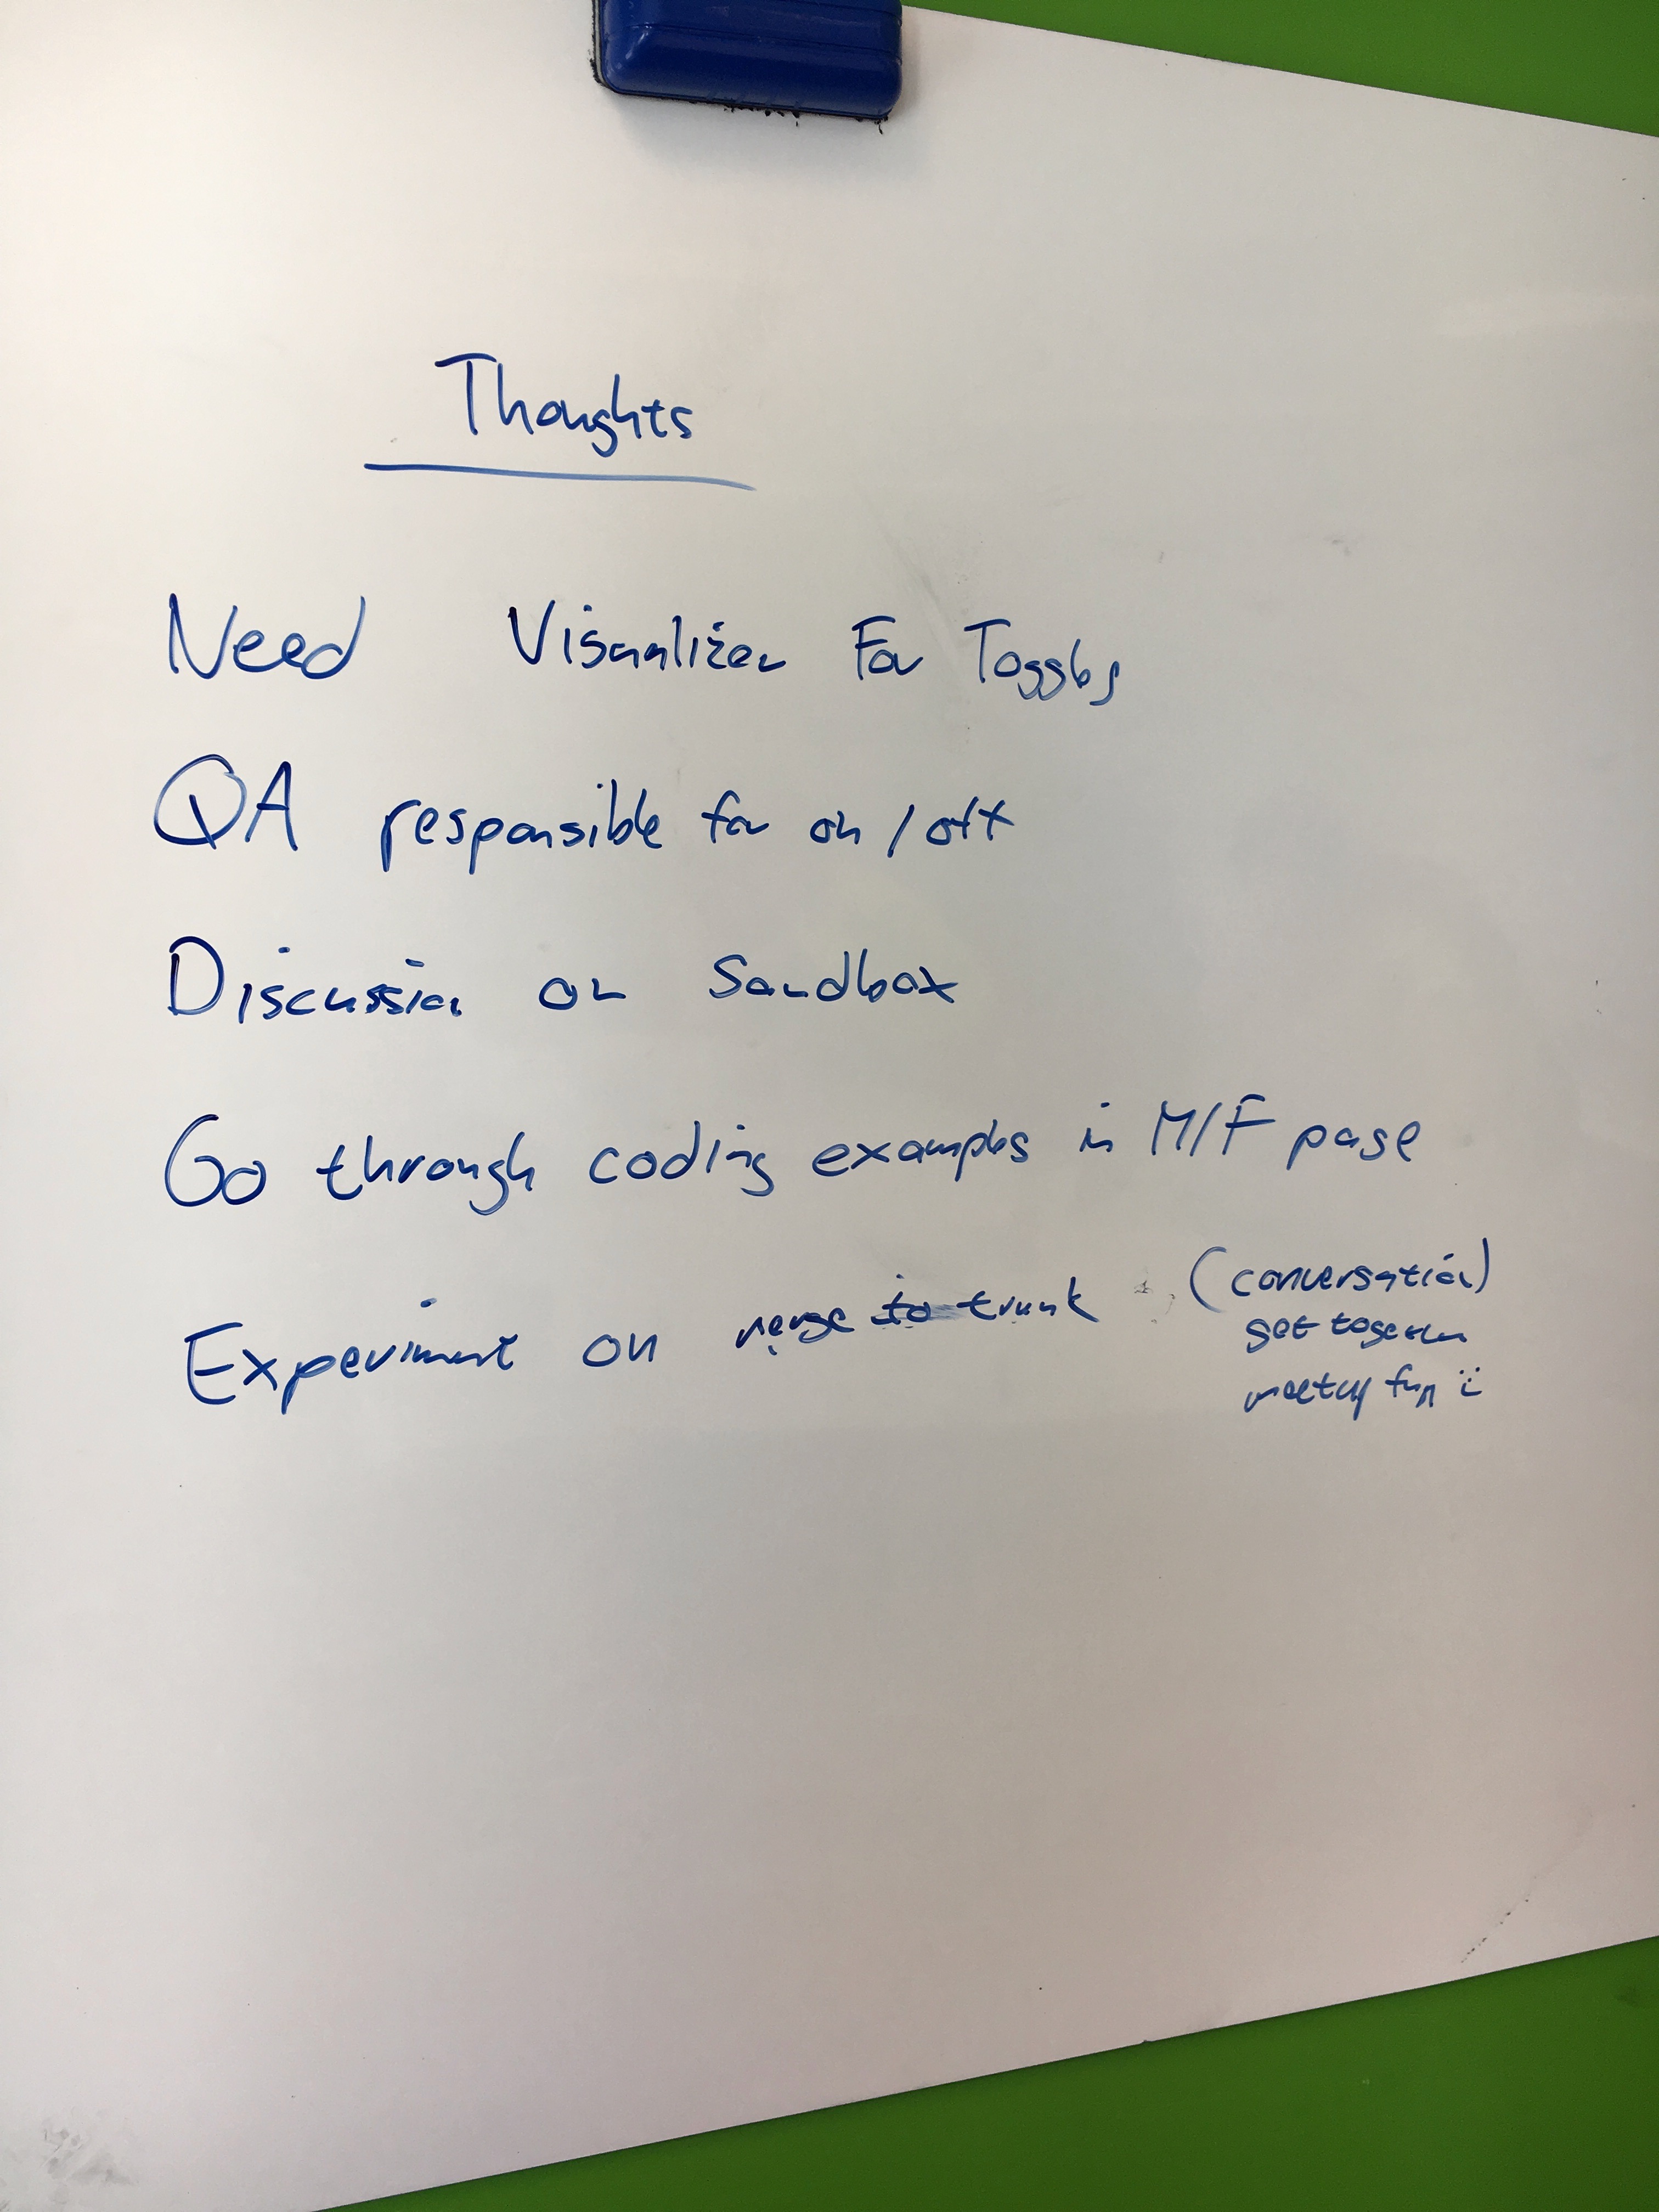 Thoughts
Need Visualizer For Toggles
QA responsible for on / off
Discussion on Sandbox
Go through coding examples in M/F page
Experiment on merge to trunk (conversation)
get together
meetup fun :)